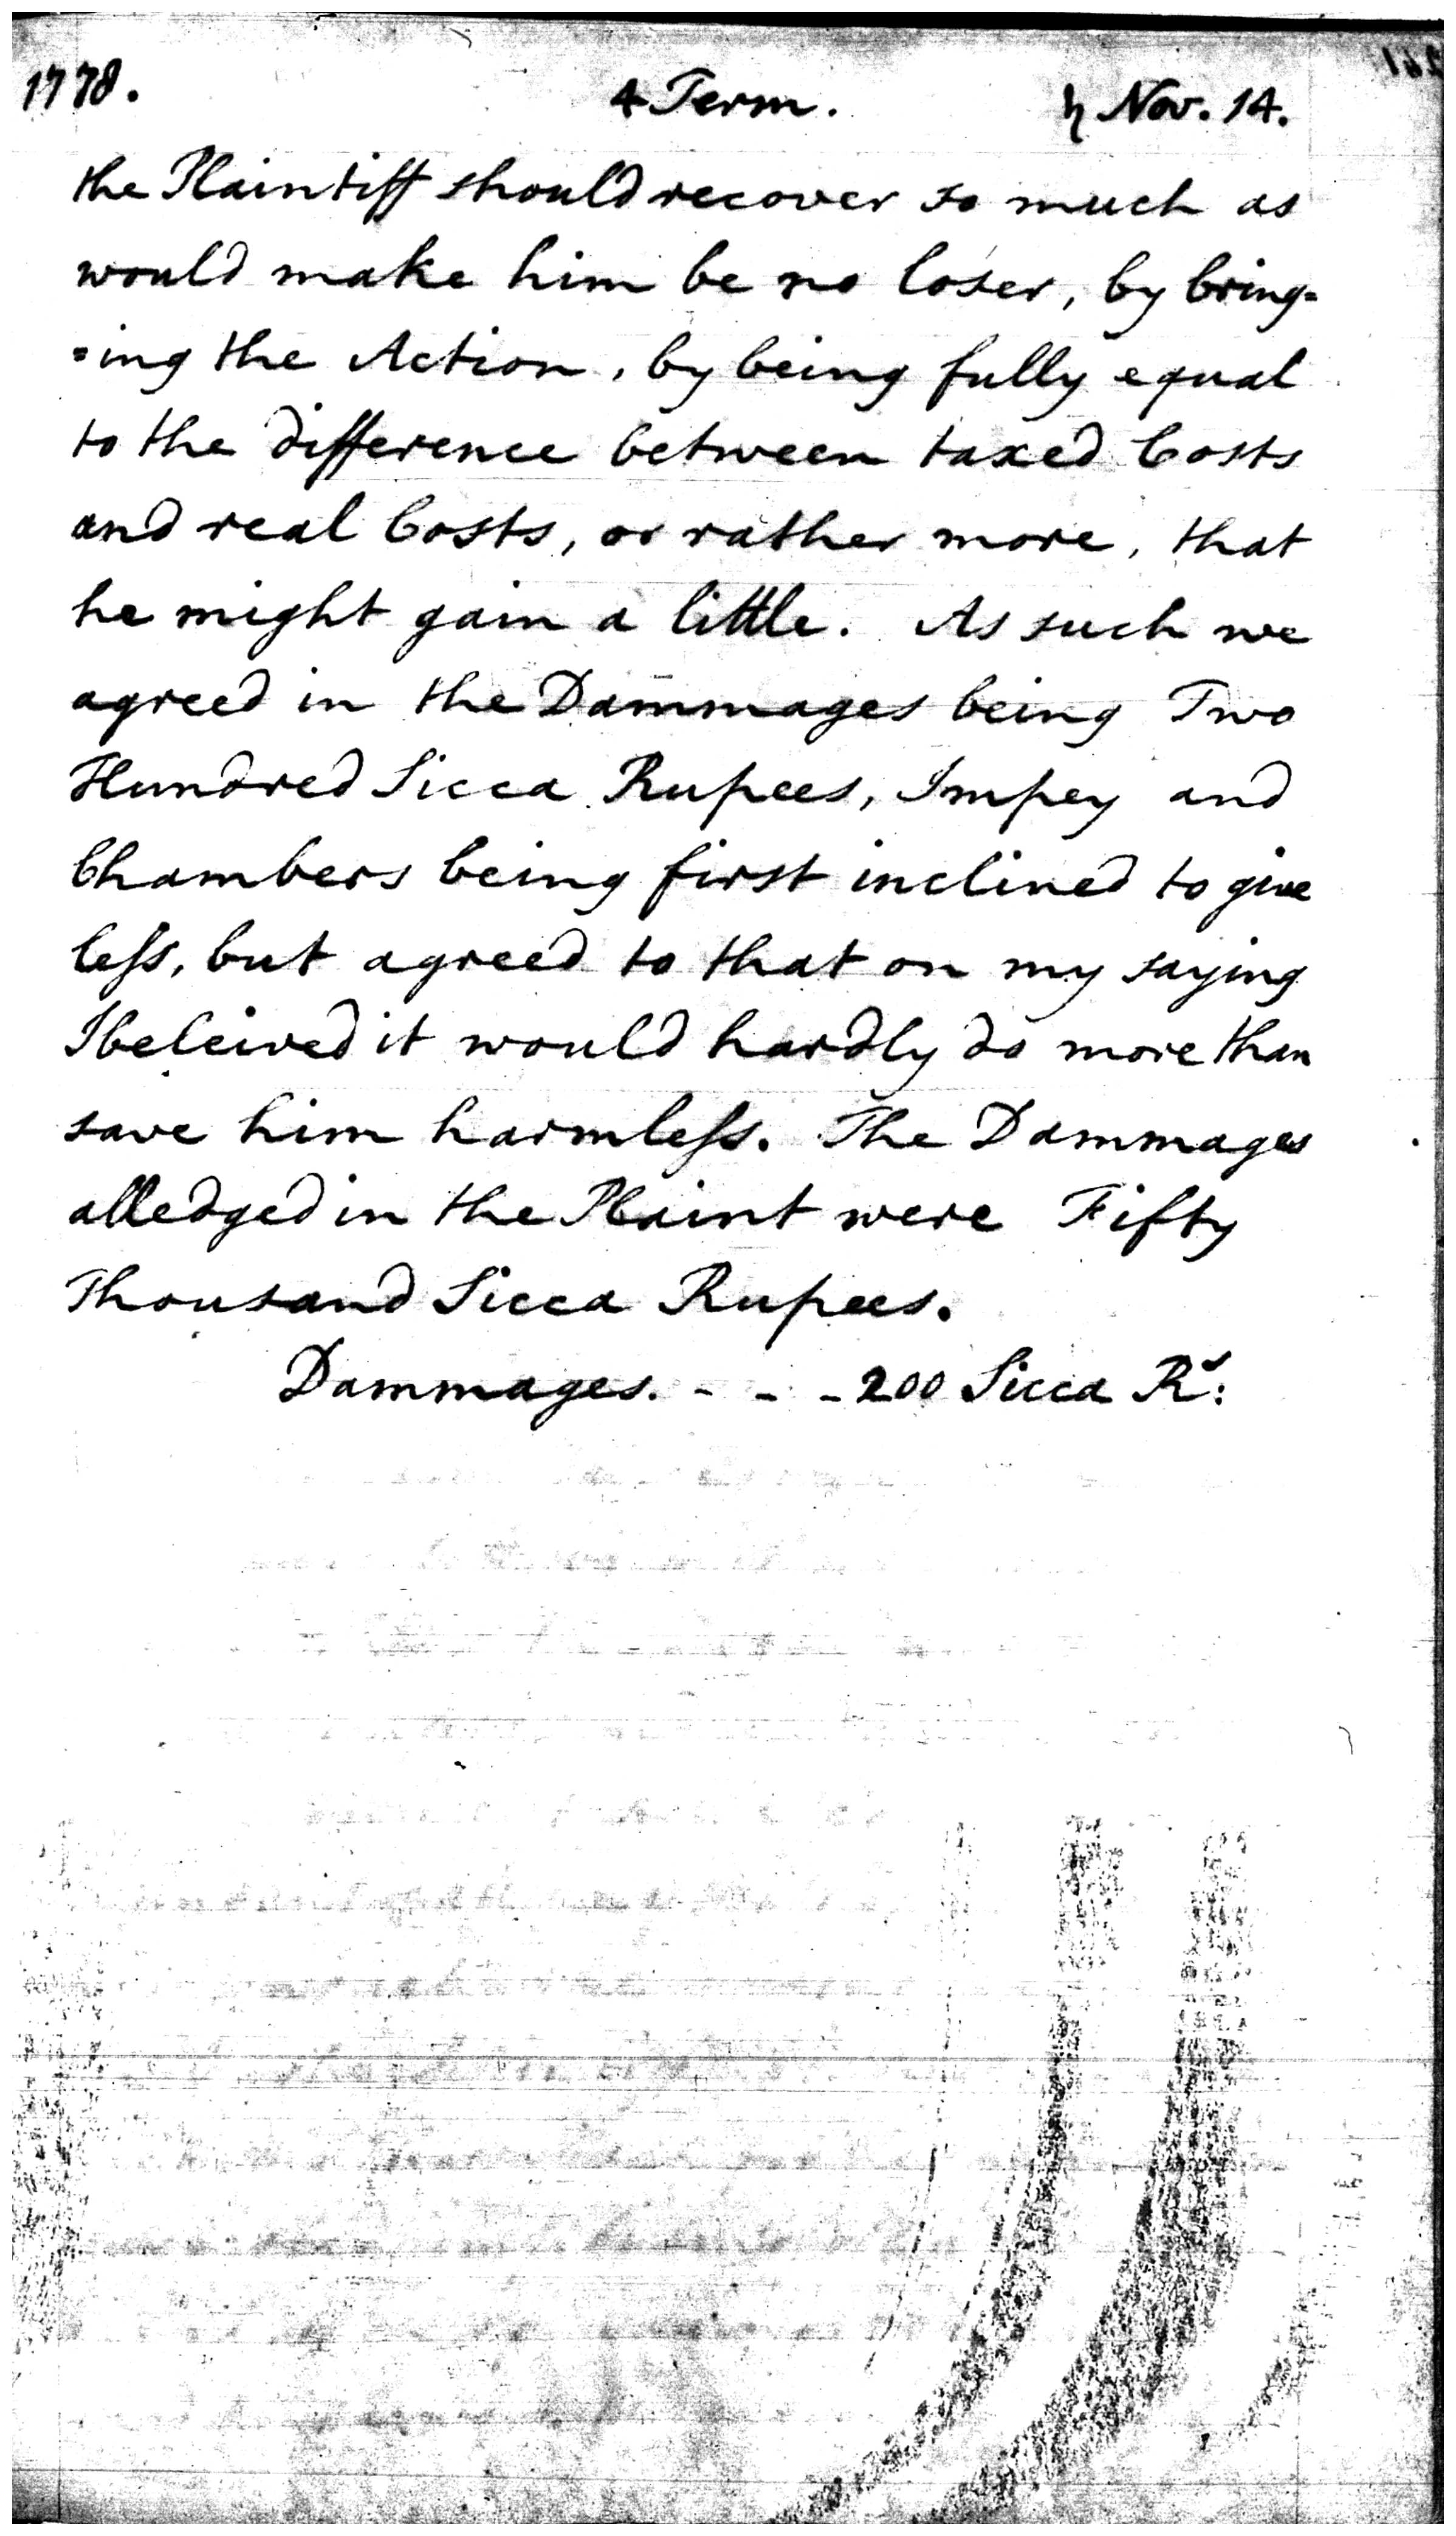 1778. 4 Term. ♄ Nov. 14.
the Plaintiff should recover so much as
would make him be no loser, by bring=
=ing the Action, by being fully equal
to the difference between taxed Costs
and real Costs, or rather more, that
he might gain a little. As such we
agreed in the Dammages being Two
Hundred Sicca Rupees, Impey and
Chambers being first inclined to give
leſs, but agreed to that on my saying
I beleived it would hardly do more than
save him harmleſs. The Dammages
alledged in the Plaint were Fifty
Thousand Sicca Rupees.
Dammages. - - - 200 Sicca Rˢ: